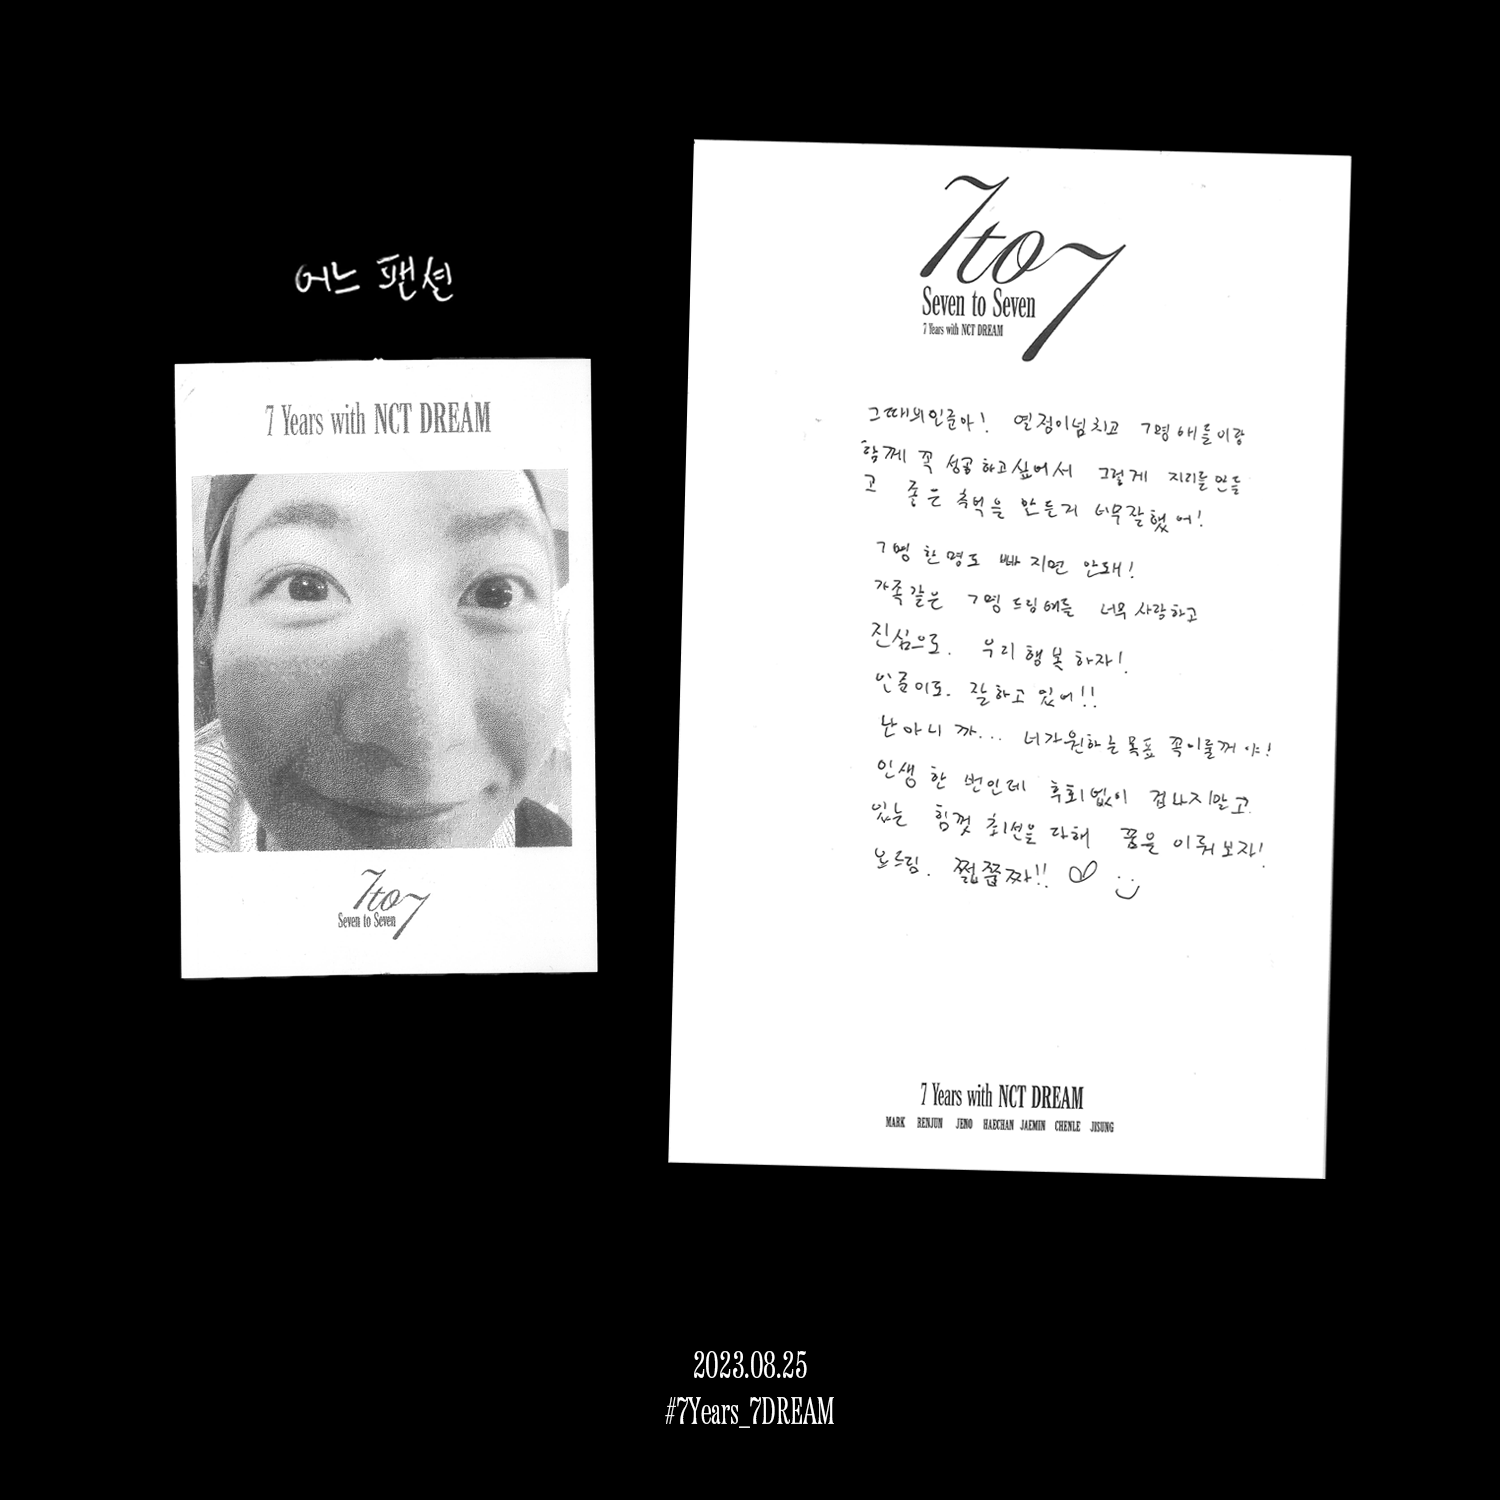 어느 팬션
7 Years with NCT DREAM
7to7
Seven to Seven
7to7
Seven to Seven
7 Years with NCT DREAM
그때의인준아! 열정이넘치고 7명 애들이랑
함께 꼭 성공하고싶어서 그렇게 지리를 만들
고 좋은 추억을 만든거 너무잘했어!
7명 한명도 빠지면 안돼!
가족같은 7명 드림애들 너무 사랑하고
진심으로. 우리 행복하자!
인준이도. 잘하고 있어!!
난아니까... 너가원하는목표 꼭이룰꺼야!
인생 한 번인데 후회없이 겁나지말고.
있는 힘껏 최선을 다해 꿈을 이뤄보자!
드림. 쩔쭙짜!!
7 Years with NCT DREAM
MARK RENJUN JENO HAECHAN JAEMIN CHENLE JISUNG
2023.08.25
#7Years_7DREAM